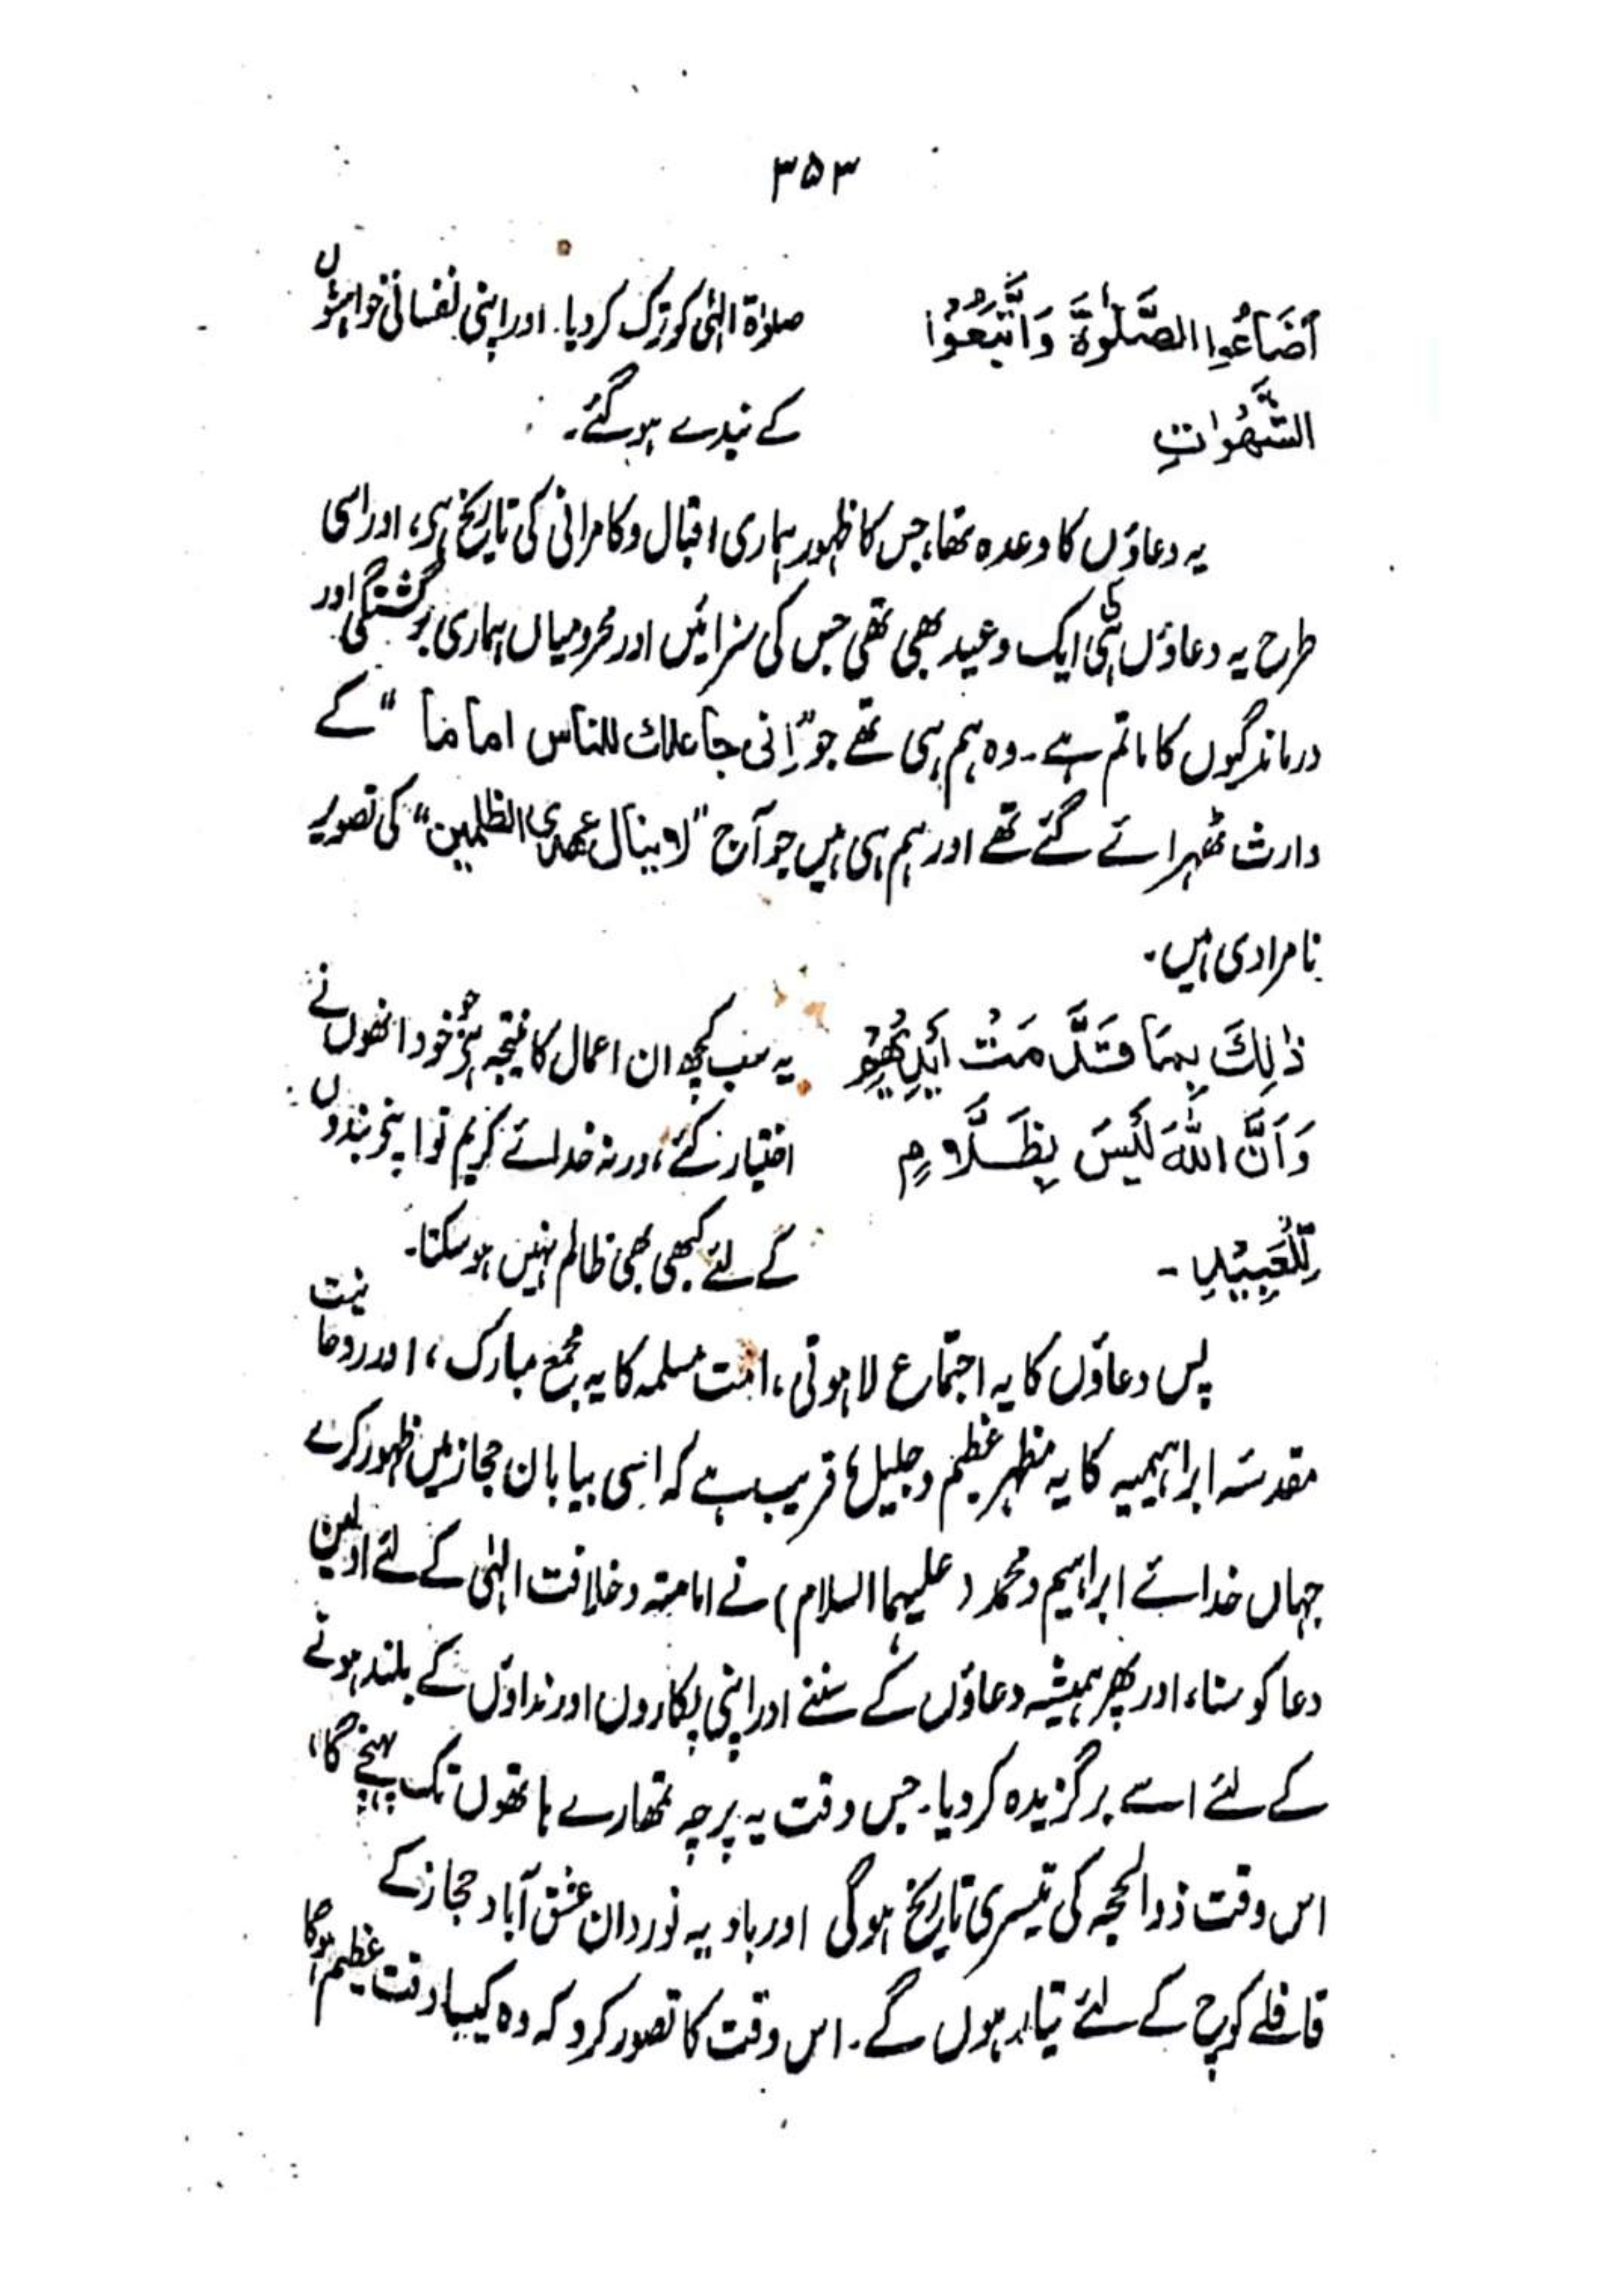 ۳۵۳
اَضَاعُوا الصَّلٰوۃَ وَاتَّبَعُوْا صلوٰۃ الٰہی کو ترک کر دیا. اور اپنی نفسانی خواہشوں
الشَّھَوٰاتِ کے بندے ہو گئے۔
یہ دعاؤں کا وعدہ تھا، جس کا ظہور ہماری اقبال و کامرانی کی تاریخ ہی، اور اسی
طرح یہ دعاؤں ہی ایک وعید بھی تھی جس کی سزائیں اور محرومیاں ہماری برگشتگی اور
درماندگیوں کا ماتم ہے۔ وہ ہم ہی تھے جو "اِنی جاعلك للناس اماما" کے
وارث ٹھہرائے گئے تھے اور ہم ہی ہیں جو آج "لا ینال عھدی الظلمین" کی تصویر
نامرادی ہیں۔
ذٰلِكَ بِمَا قَدَّ مَتْ اَیْدِیْھِمْ یہ سب کچھ ان اعمال کا نتیجہ ہی جو خود انھوں نے
وَاَنَّ اللّٰہَ لَیْسَ بِظَلَّامٍ اختیار کئے، ورنہ خدائے کریم تو اپنے بندوں
لِّلْعَبِیْدِ۔ کے لئے کبھی بھی ظالم نہیں ہو سکتا۔
پس دعاؤں کا یہ اجتماع لاہوتی، امت مسلمہ کا یہ مجمع مبارک، اور روحانیت
مقدسۂ ابراہیمیہ کا یہ منظہر عظیم و جلیل قریب ہے کہ اسی بیابان حجاز میں ظہور کرے
جہاں خدائے ابراہیم و محمد (علیہما السلام) نے امامتہ و خلافت الٰہی کے لئے اولین
دعا کو سنا، اور پھر ہمیشہ دعاؤں کے سننے اور اپنی پکاروں اور نداؤں کے بلند ہونے
کے لئے اسے برگزیدہ کر دیا۔ جس وقت یہ پرچہ تمھارے ہاتھوں تک پہنچے گا،
اس وقت ذوالحجہ کی تیسری تاریخ ہو گی اور بادیہ نوردان عشق آباد حجاز کے
قافلے کوچ کے لئے تیار ہوں گے۔ اس وقت کا تصور کرو کہ وہ کیسا وقت عظیم ہوگا